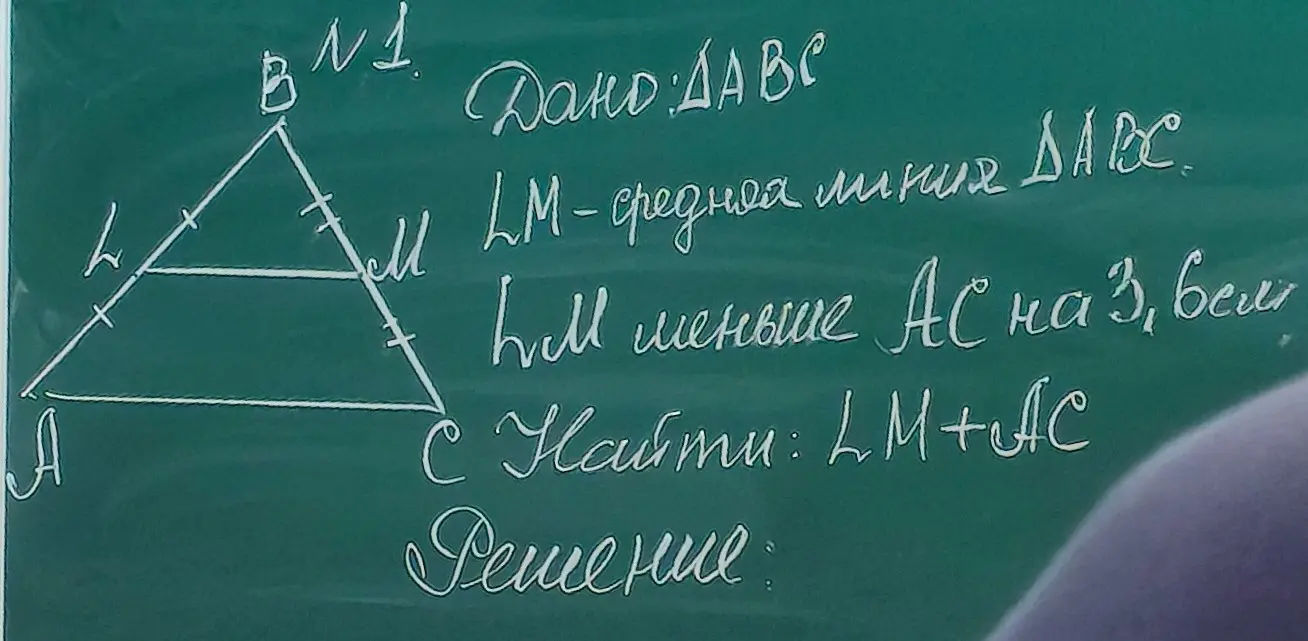 N 1.
B
Дано: ΔABC
LM - средняя линия ΔABC.
L
M
LM меньше AC на 3,6см
A
C
Найти: LM+AC
Решение: